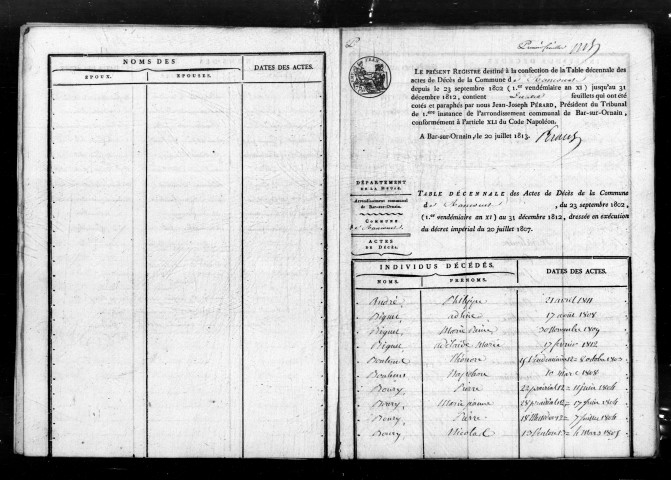 NOMS DES
DATES DES ACTES.
ÉPOUX.
ÉPOUSES.
Premier feuillet
LE PRÉSENT REGISTRE destiné à la confection de la Table décennale des
actes de Décès de la Commune de Rancourt
depuis le 23 septembre 1802 (1.er vendémiaire an XI) jusqu'au 31
décembre 1812, contient feuillets qui ont été
cotés et paraphés par nous Jean-Joseph PÉRARD, Président du Tribunal
de 1.ere instance de l'arrondissement communal de Bar-sur-Ornain,
conformément à l'article XLI du Code Napoléon.
A Bar-sur-Ornain, le 20 juillet 1813.
DÉPARTEMENT
DE LA MEUSE.
Arrondissement communal
de Bar-sur-Ornain.
COMMUNE
de Rancourt
ACTES
DE DÉCÈS.
TABLE DÉCENNALE des Actes de Décès de la Commune
de Rancourt, du 23 septembre 1802,
(1.er vendémiaire an XI) au 31 décembre 1812, dressée en exécution
du décret impérial du 20 juillet 1807.
INDIVIDUS DÉCÉDÉS.
DATES DES ACTES.
NOMS.
PRÉNOMS.
André Philippe 21 avril 1811
17 août 1808
Marie 30 Novembre 1809
adélaïde Marie 17 février 1812
8 octobre 1803
Napoléon 10 Mars 1808
Boury Pierre 22 prairial 12 = 11 juin 1804
Boury Marie jeanne 28 prairial 12 = 17 juin 1804
Boury Pierre 18 Messidor 12 = 7 juillet 1804
Boury Nicolas